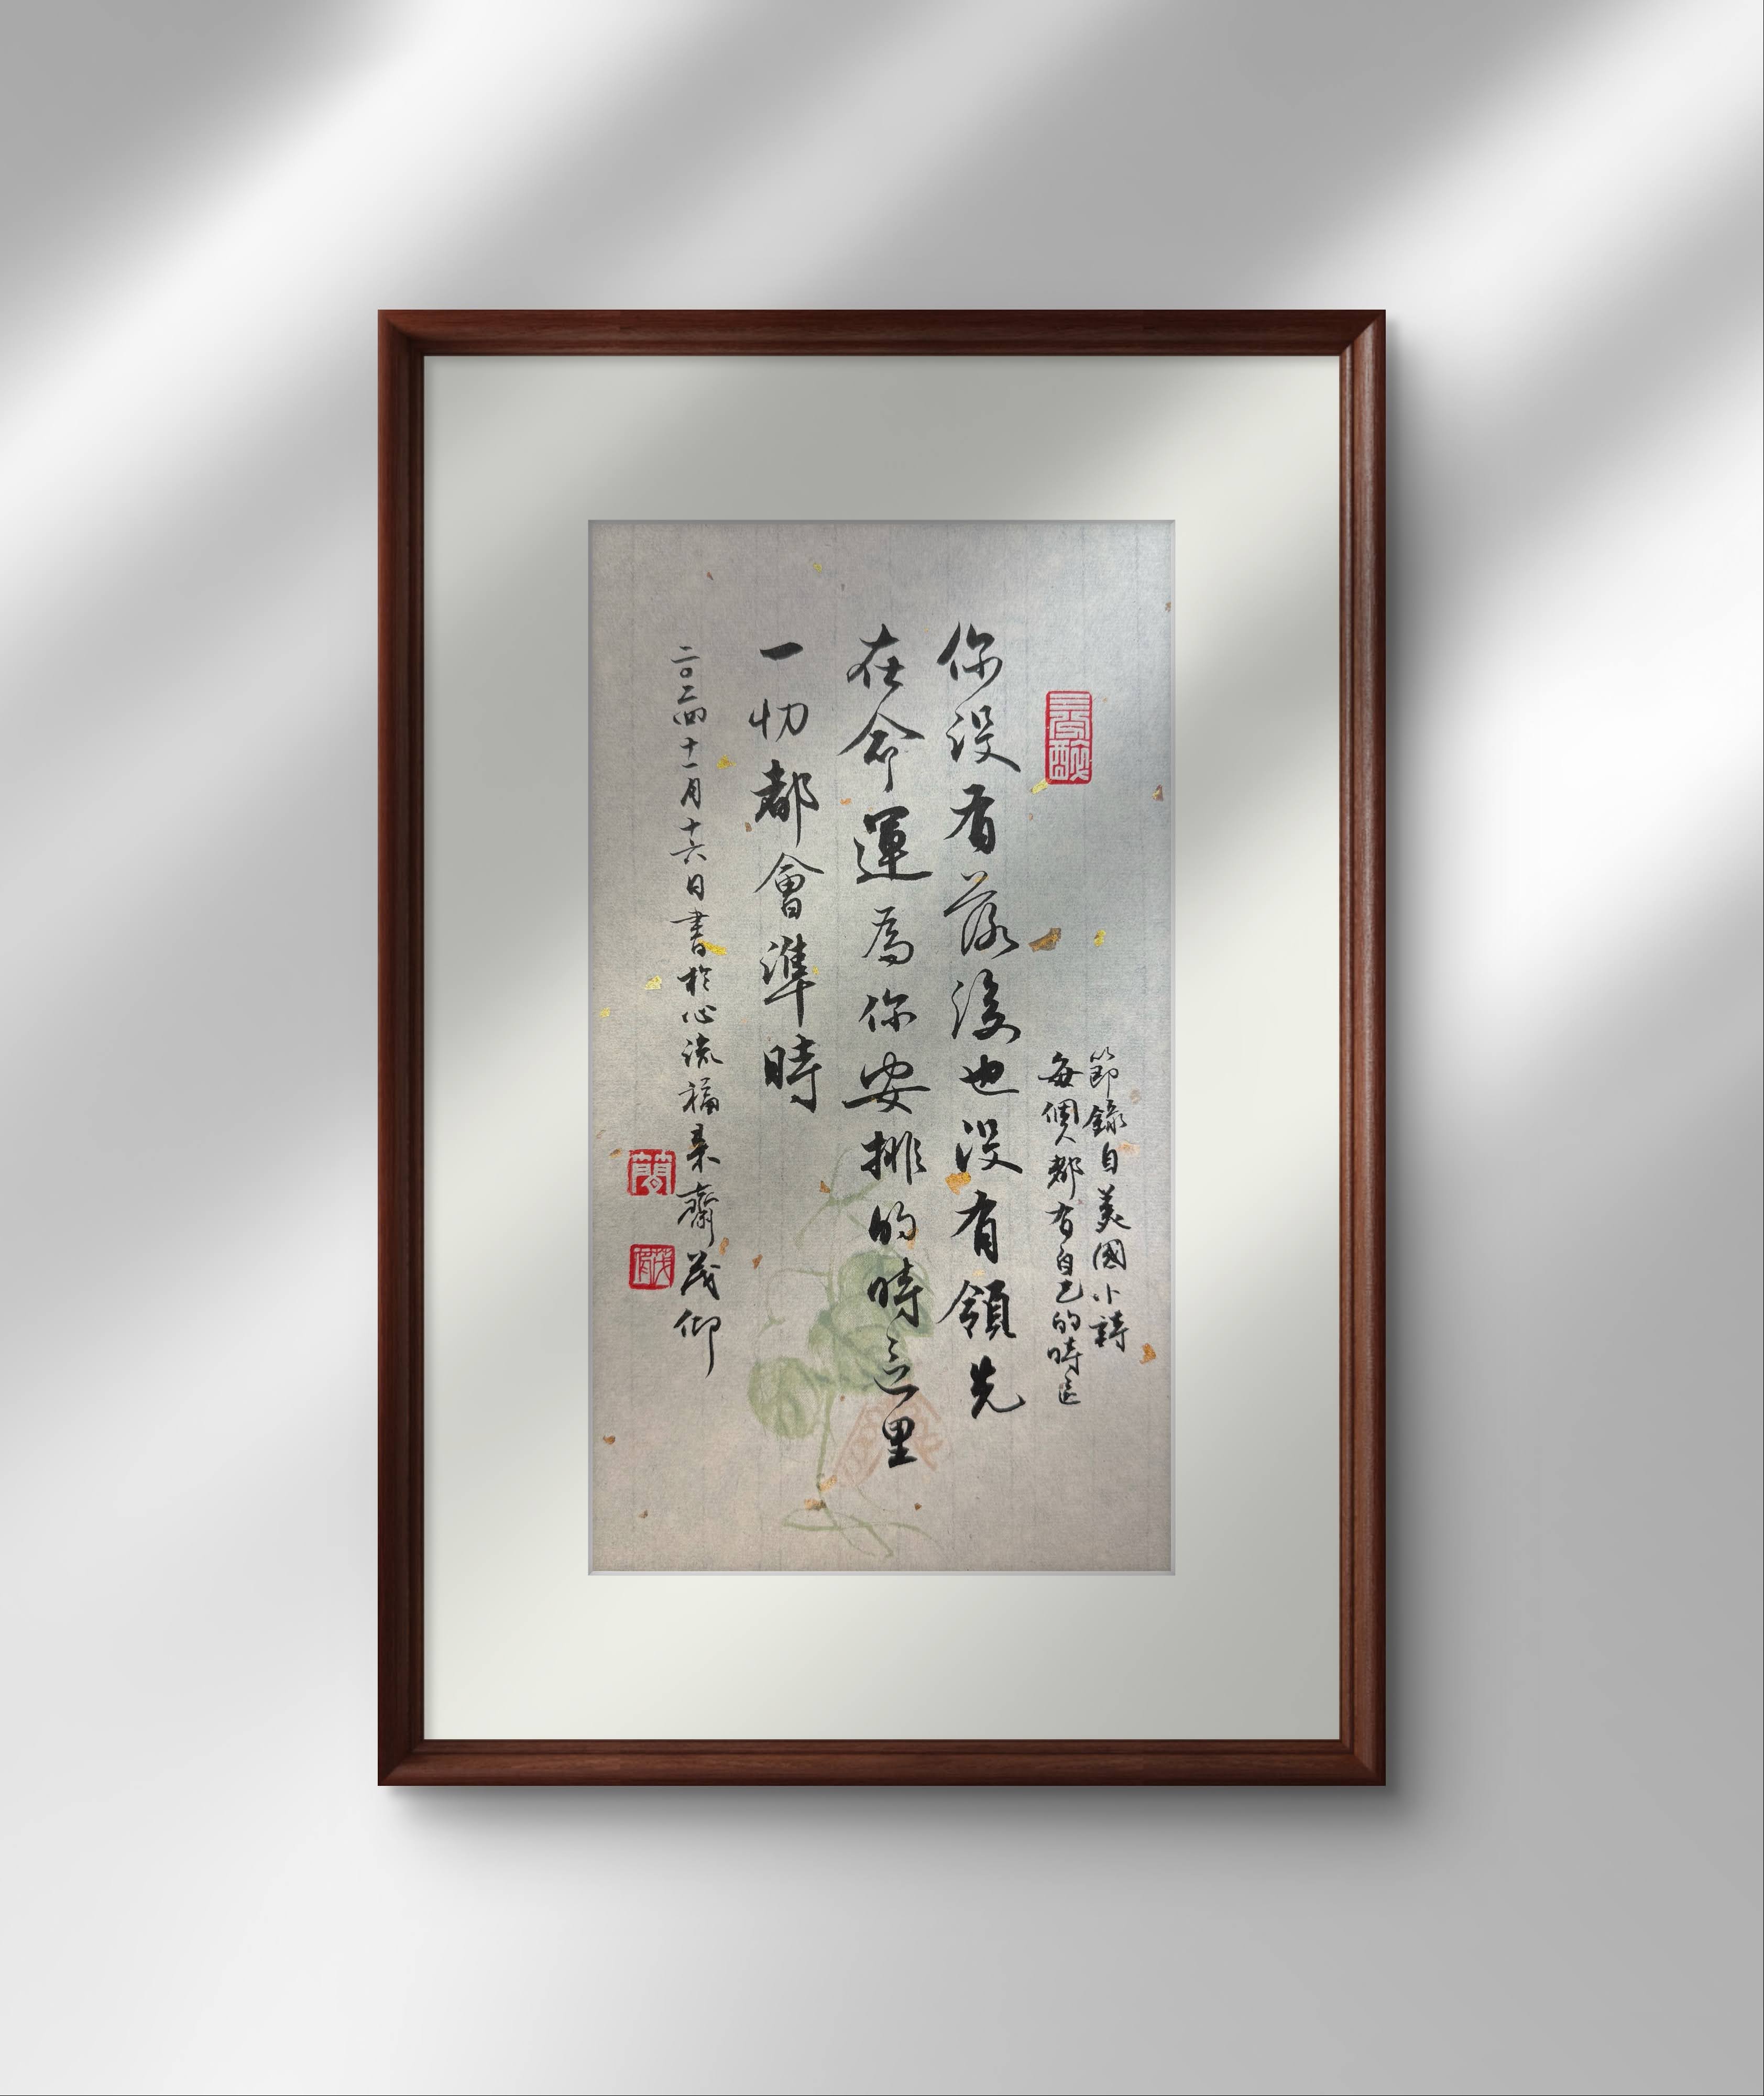 節錄自美國小詩
每個人都有自己的時區
你没有落後也没有領先
在命運為你安排的時區里
一切都會準時
二〇二四十一月十六日書於心流福来齋茂仰
簡